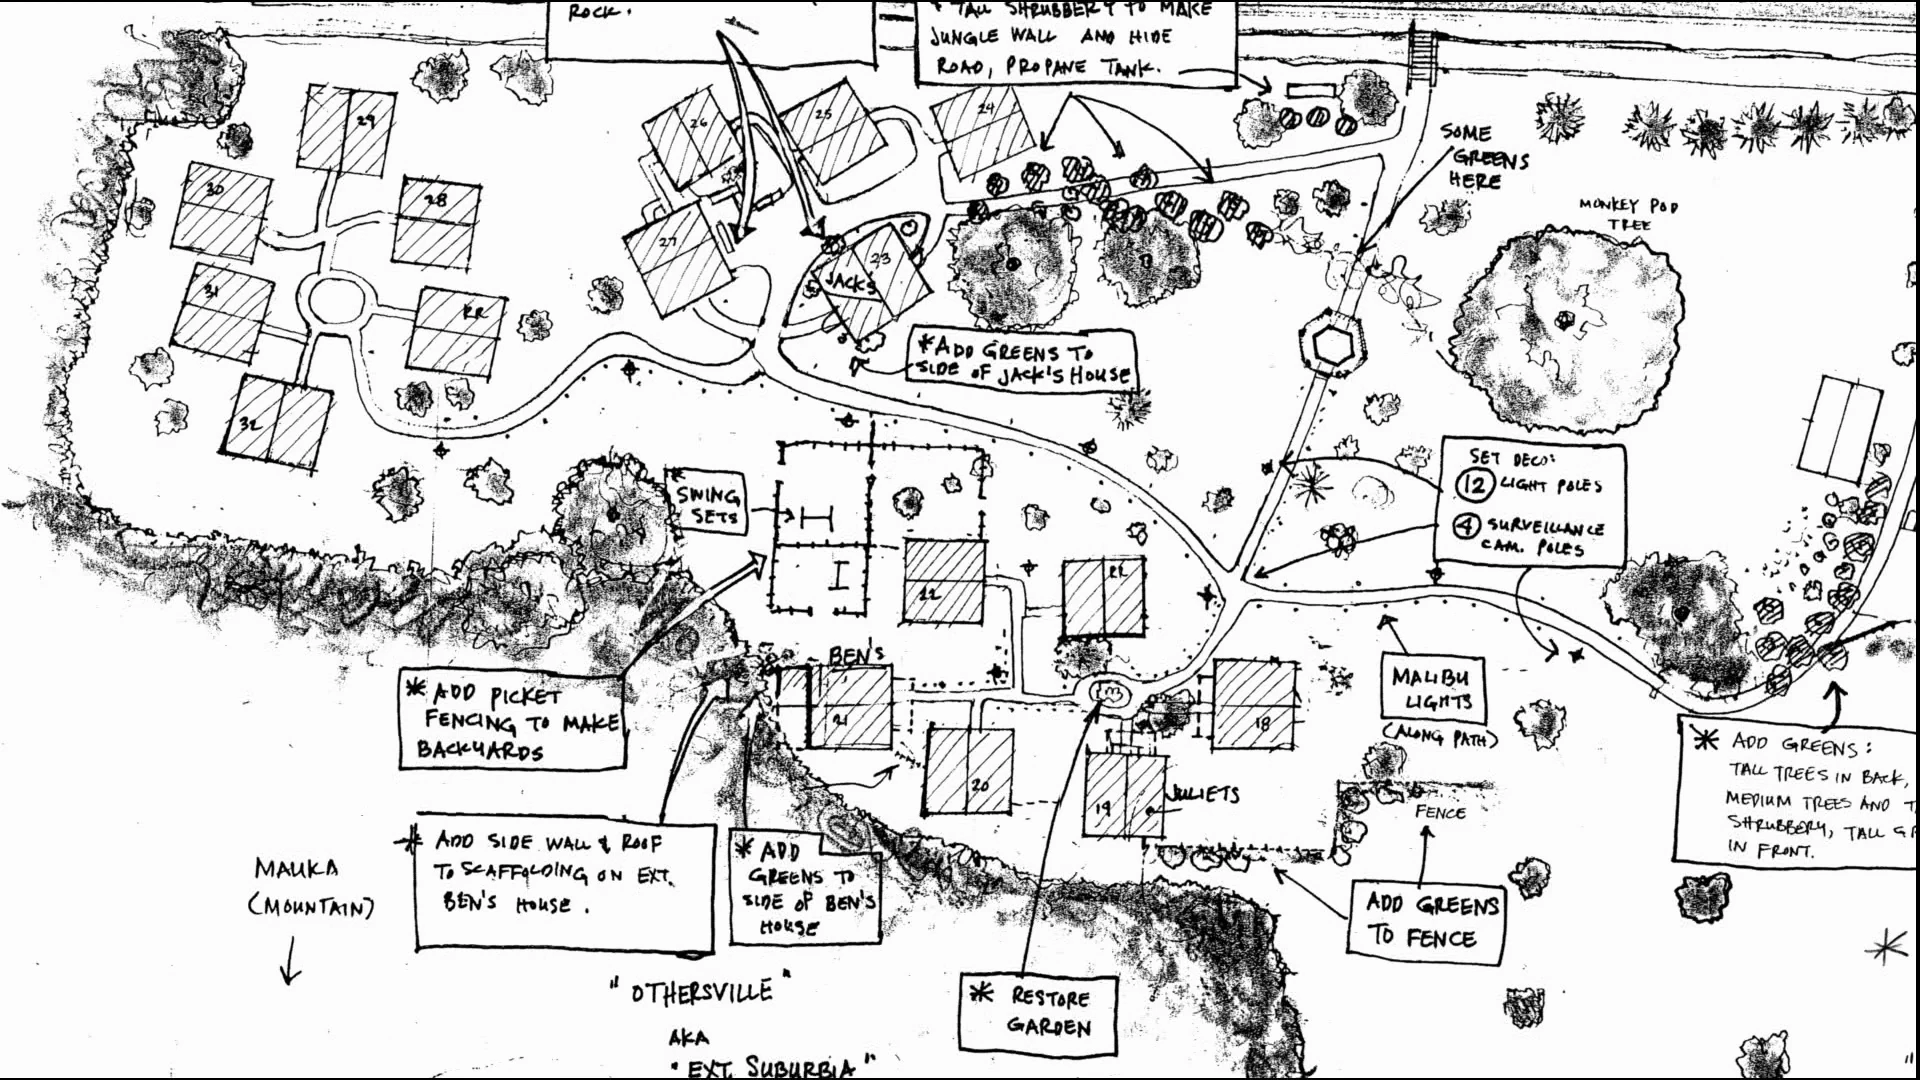 ROCK.
+ TALL SHRUBBERY TO MAKE
JUNGLE WALL AND HIDE
ROAD, PROPANE TANK.
29
30
28
31
RR
32
26
25
24
27
23
JACK'S
SOME
GREENS
HERE
MONKEY POD
TREE
* ADD GREENS TO
SIDE OF JACK'S HOUSE
SET DECO:
12 LIGHT POLES
4 SURVEILLANCE
CAM. POLES
* SWING
SETS
22
BEN'S
21
20
19
18
JULIETS
MALIBU
LIGHTS
(ALONG PATH)
* ADD PICKET
FENCING TO MAKE
BACKYARDS
* ADD GREENS:
TALL TREES IN BACK,
MEDIUM TREES AND T
SHRUBBERY, TALL GR
IN FRONT.
FENCE
* ADD SIDE WALL & ROOF
TO SCAFFOLDING ON EXT.
BEN'S HOUSE.
* ADD
GREENS TO
SIDE OF BEN'S
HOUSE
ADD GREENS
TO FENCE
MAUKA
(MOUNTAIN)
* RESTORE
GARDEN
"OTHERSVILLE"
AKA
"EXT. SUBURBIA"